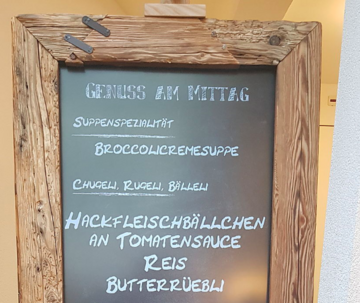 Genuss am Mittag
Suppenspezialität
Broccolicremesuppe
Chugeli, Rugeli, Bälleli
Hackfleischbällchen
an Tomatensauce
Reis
Butterrüebli